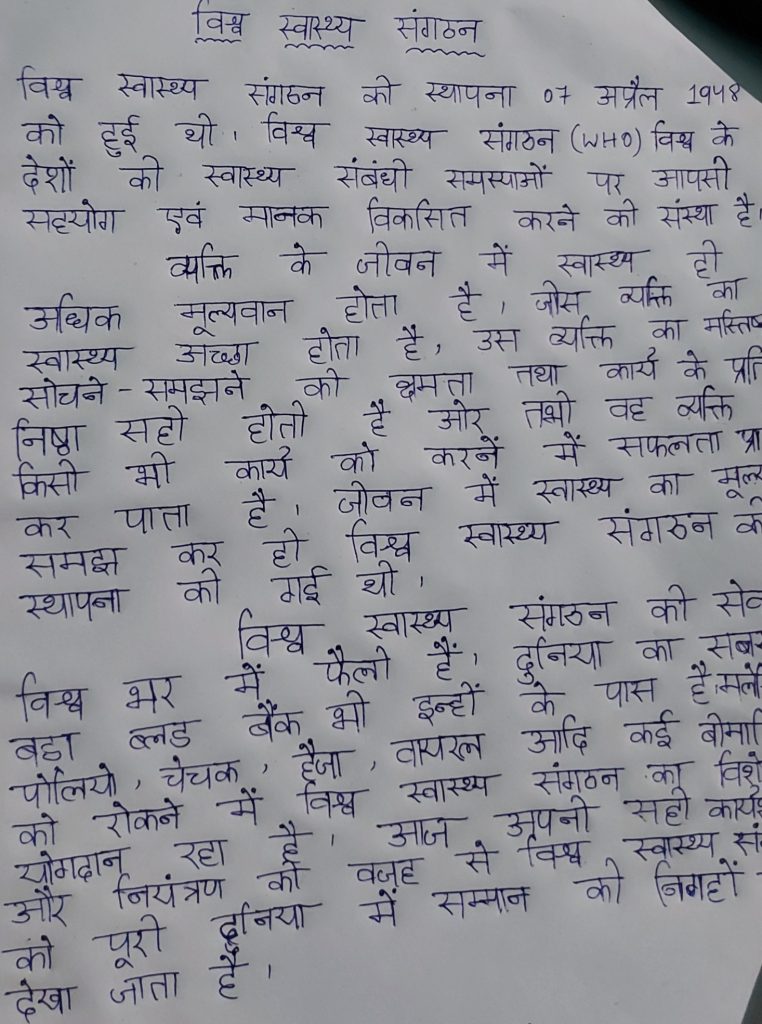 विश्व स्वास्थ्य संगठन
विश्व स्वास्थ्य संगठन की स्थापना 07 अप्रैल 1948
को हुई थी । विश्व स्वास्थ्य संगठन (WHO) विश्व के
देशों की स्वास्थ्य संबंधी समस्याओं पर आपसी
सहयोग एवं मानक विकसित करने की संस्था है।
व्यक्ति के जीवन में स्वास्थ्य ही
अधिक मूल्यवान होता है , जीस व्यक्ति का
स्वास्थ्य अच्छा होता है, उस व्यक्ति का मस्तिष्
सोचने - समझने की क्षमता तथा कार्य के प्रति
निष्ठा सही होती है और तभी वह व्यक्ति
किसी भी कार्य को करनें में सफलता प्रा
कर पाता है । जीवन में स्वास्थ्य का मूल्य
समझ कर ही विश्व स्वास्थ्य संगठन की
स्थापना की गई थी ।
विश्व स्वास्थ्य संगठन की सेव
विश्व भर में फैली हैं । दुनिया का सबस
बड़ा ब्लड बैंक भी इन्हीं के पास है। मले
पोलियो , चेचक , हैजा , वायरल आदि कई बीमारि
को रोकने में विश्व स्वास्थ्य संगठन का विशे
योगदान रहा है । आज अपनी सही कार्यश
और नियंत्रण की वजह से विश्व स्वास्थ्य सं
को पूरी दुनिया में सम्मान की निगाहों
देखा जाता है ।